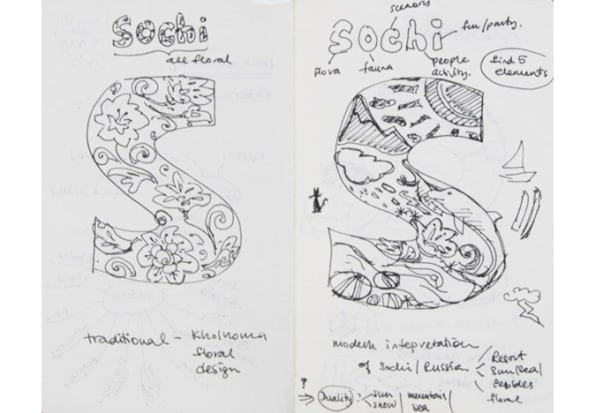 Sochi
all floral
S
traditional - Khohoma
floral
design
scenery
Sochi
fun/party.
flora
fauna
people
activity.
find 5
elements
S
modern intepretation
of Sochi/Russian
Resort
Sun/Sea/
Pebbles
floral
?
Duality?
sun
snow
mountain/
sea